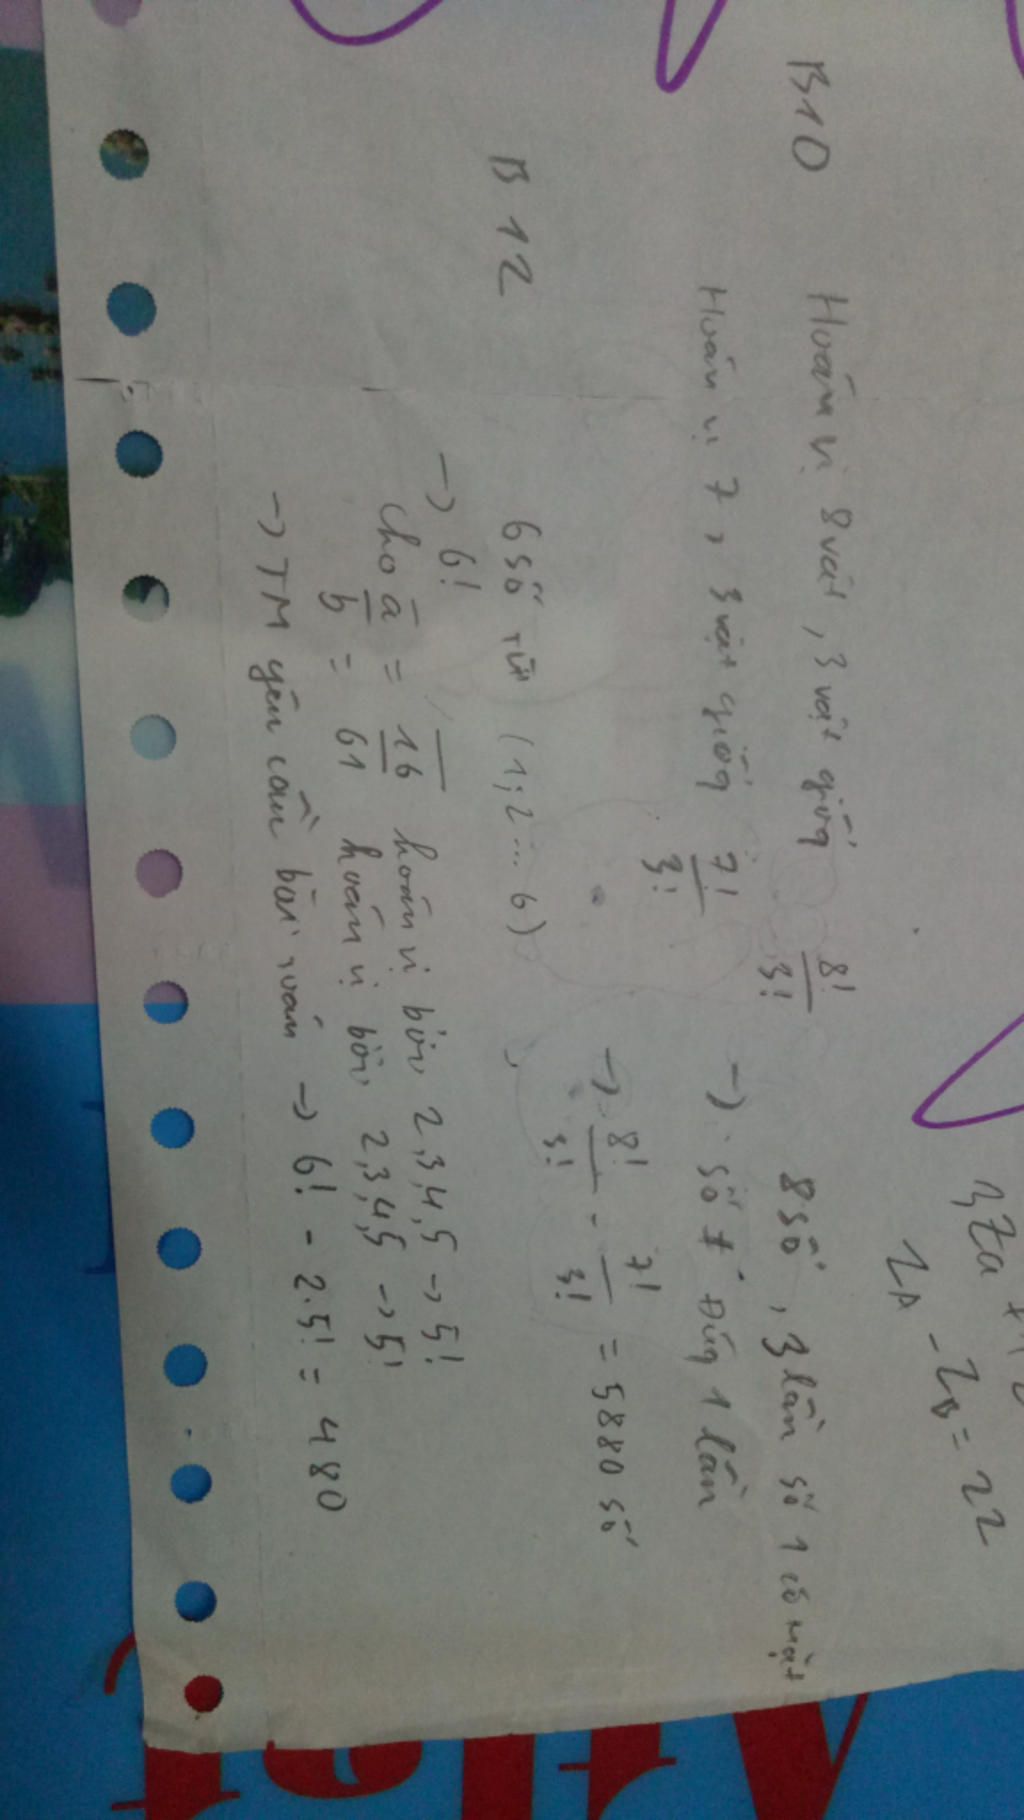 B10 Hoán vị 8 vật, 3 vật giống 8!/3! 8 số, 3 lần số 1 có mặt
Hoán vị 7, 3 vật giống 7!/3! -> số ≠ đúng 1 lần
-> 8!/3! - 7!/3! = 5880 số
B12
6 số từ (1;2...6)
-> 6!
cho a = 16 hoán vị bởi 2,3,4,5 -> 5!
b = 61 hoán vị bởi 2,3,4,5 -> 5!
-> TM yêu cầu bài toán -> 6! - 2.5! = 480
ZA - ZB = 22